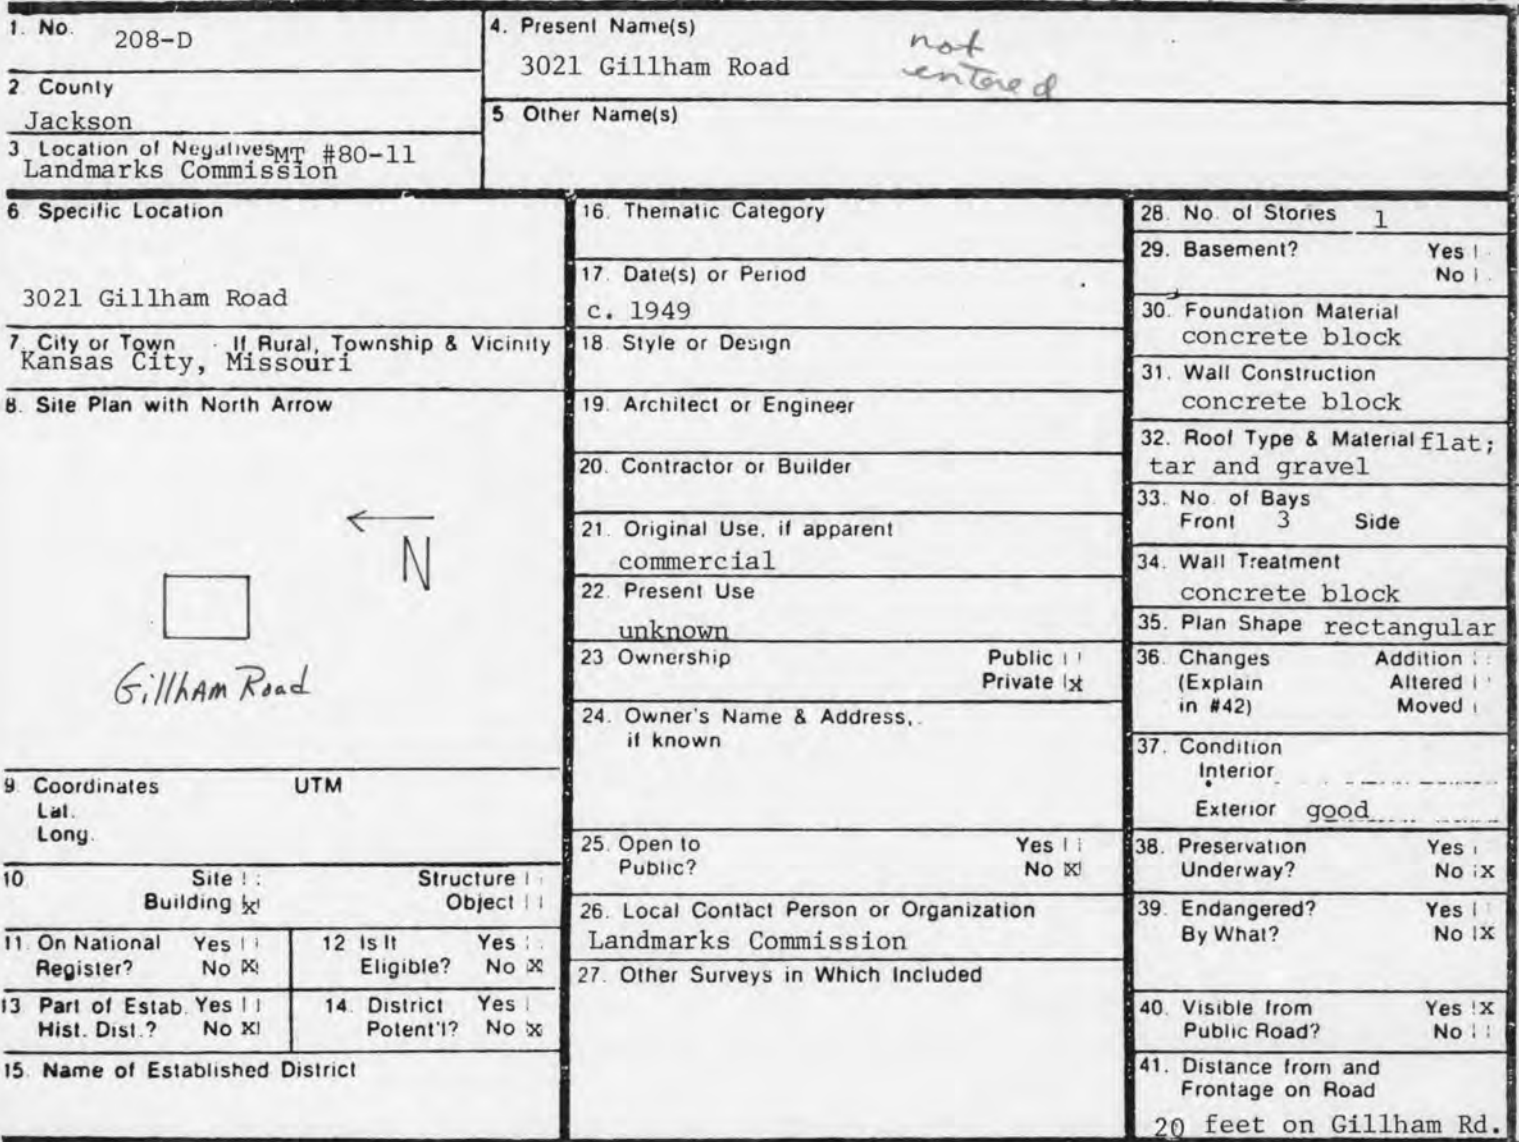 1. No. 208-D
2 County
Jackson
3 Location of Negatives MT #80-11
Landmarks Commission
4. Present Name(s)
3021 Gillham Road
not
entered
5 Other Name(s)
6 Specific Location
3021 Gillham Road
7 City or Town If Rural, Township & Vicinity
Kansas City, Missouri
8. Site Plan with North Arrow
N
Gillham Road
9 Coordinates UTM
Lat.
Long.
10 Site Structure
Building x Object
11. On National Yes
Register? No X
12 Is It Yes
Eligible? No X
13 Part of Estab. Yes
Hist. Dist.? No X
14. District Yes
Potent'l? No X
15. Name of Established District
16. Thematic Category
17. Date(s) or Period
c. 1949
18. Style or Design
19. Architect or Engineer
20. Contractor or Builder
21. Original Use, if apparent
commercial
22. Present Use
unknown
23 Ownership Public
Private x
24. Owner's Name & Address,
if known
25. Open to Yes
Public? No X
26. Local Contact Person or Organization
Landmarks Commission
27. Other Surveys in Which Included
28. No. of Stories 1
29. Basement? Yes
No
30. Foundation Material
concrete block
31. Wall Construction
concrete block
32. Roof Type & Material flat;
tar and gravel
33. No. of Bays
Front 3 Side
34. Wall Treatment
concrete block
35. Plan Shape rectangular
36. Changes Addition
(Explain Altered
in #42) Moved
37. Condition
Interior
Exterior good
38. Preservation Yes
Underway? No X
39. Endangered? Yes
By What? No X
40. Visible from Yes X
Public Road? No
41. Distance from and
Frontage on Road
20 feet on Gillham Rd.